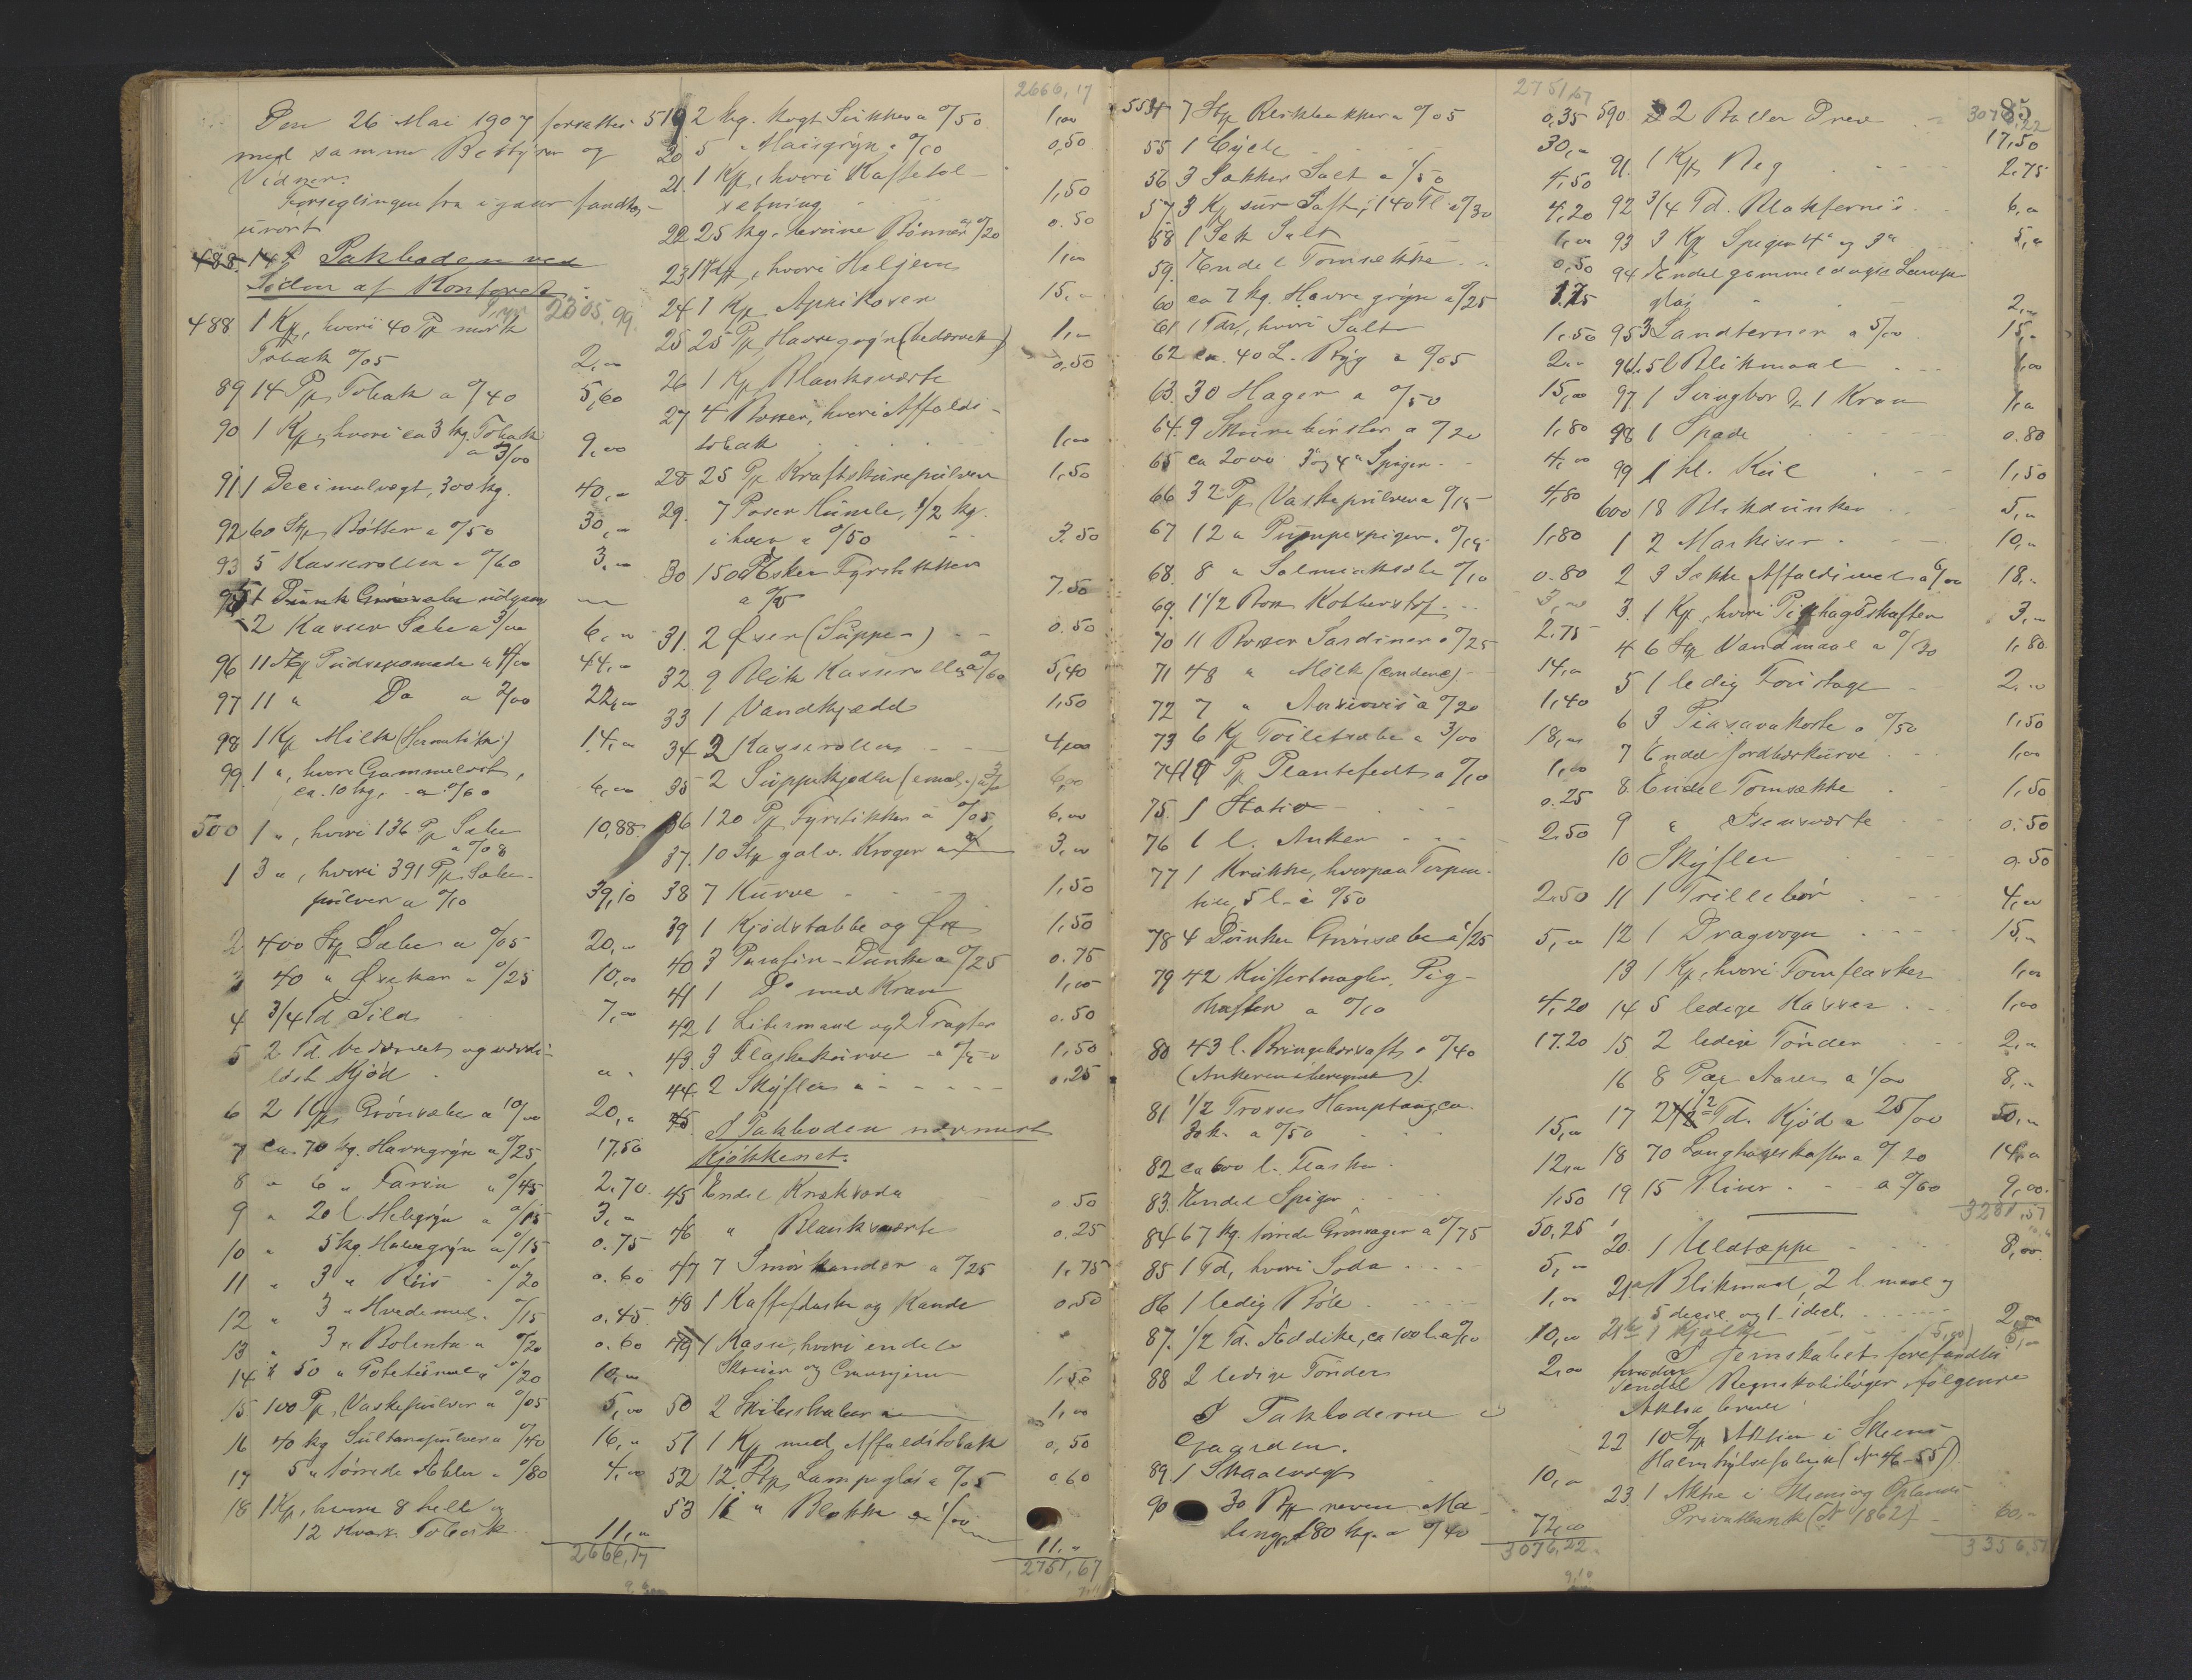 Den 26 Mai 1907 fortsattes
med samme Bestyrer og
Vidner.
Forseglingen fra igaar fandtes
urørt
Pakboden ved
Siden af Kontoret.
2305,99
488 1 Kp, hvori 40 Pp mørk
Tobak 0/05 2,00
89 14 Pp Tobak a 0/40 5,60
90 1 Kp, hvori ca 3 kg. Tobak
a 3/00 9,00
91 1 Decimalvægt, 300 kg. 40,-
92 60 Stp Bøtter a 0/50 30,-
93 5 Kasseroller a 0/60 3,-
1 Dunk Grønsæbe udgaar
2 Kasser Sæbe a 3/00 6,-
96 11 Stp Pudrepomade a 4/00 44,-
97 11 " Do a 2/00 22,-
98 1 Kp Milk (Hermetiske) 14,-
99 1 ", hvori Gammelost,
ca. 10 kg. a 0/60 6,00
500 1 ", hvori 136 Pp Sæbe
a 0/08 10,88
1 3 ", hvori 391 Pp Sæbe-
pulver a 0/10 39,10
2 400 Stp Sæbe a 0/05 20,-
3 40 " Øsekar a 0/25 10,00
4 3/4 Td Sild 7,00
5 2 Td. bedærvet og værdi-
løst Kjød " "
6 2 Kp Grønsæbe a 10/00 20,-
7 ca. 70 kg. Havregryn a 0/25 17,50
8 " 6 " Farin a 0/45 2,70
9 " 20 l. Helgryn a 0/15 3,-
10 " 5 kg. Havregryn a 0/15 0.75
11 " 3 " Riis a 0/20 0.60
12 " 3 " Hvedemel a 0/15 0.45
13 " 3 " Bolenta a 0/20 0.60
14 " 50 " Potetesmel a 0/20 10,00
15 100 Pp, Vaskepulver a 0/05 5,00
16 40 kg Sultanapulver a 0/40 16,"
17 5 " tørrede Æbler a 0/80 4,00
18 1 Kp, hvori 8 hele og
12 Kvart. Tobak 11,00
2666,17
2666,17
519 2 kg. kogt Sukker a 0/50 1,00
20 5 " Maisgryn a 0/10 0,50
21. 1 Kp, hvori Kaffetil-
sætning 1,50
22 25 kg. brune Bønner a 0/20 0.50
23 1 Stp, hvori Heljern 1,00
24 1 Kp Aprikoser 15,-
25 25 Pp Havregryn (bedærvet) 1,-
26 1 Kp Blanksværte 0,50
27 4 Bosser, hvori Affalds-
tobak 1,00
28 25 Pp Kraftskurepulver 1,50
29. 7 Poser Humle, 1/2 kg.
i hver a 0/50 3.50
30 150 Pp Æsker Fyrstikker
a 0/05 7,50
31. 2 Øser (Suppe-) 0.50
32 9 Blik Kasseroller a 0/60 5,40
33 1 Vandkjedel 1,50
34 2 Kasseroller 4,00
35 2 Suppekjedler (emal.) a 3/ 6,00
36 120 Pp Fyrstikker a 0/05 6,00
37. 10 Stp galv. Kroger 3,00
38 7 Kurve 1,50
39 1 Kjødstabbe og Øx 1,50
40 3 Parafin-Dunke a 0/25 0.75
41 1 Do med Kran 1,00
42 1 Litermaal og 2 Tragter 0.50
43. 3 Flaskekurve a 0/50 1,50
44. 2 Skyfler 0,25
I Pakboden nærmest
Kjøkkenet.
45 Endel Knækroda 0.50
46 " Blanksværte 0.25
47 7 Smørkander a 0/25 1.75
48 1 Kaffefdaske og Kande 0.50
49 1 Kasse, hvori endel
Skruer og 1,50
50 2 1,00
51 1 Kp med Affaldstobak 0,50
52 12 Stp Lampeglas a 0/05 0.60
53 11 " Blokke a 1/00 11.-
2751,67
2751,67
554 7 Stp Blikbakker a 0/05 0,35
55 1 Cycle 30,-
56 3 Sækker Salt a 1/50 4,50
57 3 Kp sur Saft, i 140 Fl. a 0/30 4,20
58 1 Sæk Salt 1,00
59. Endel Tomsække 0,50
60 ca 7 kg. Havregryn a 0/25 1.75
61 1 Tdr, hvori Salt 1,50
62 ca. 40 L. Byg a 0/05 2,-
63. 30 Hager a 0/50 15,00
64. 9 Skurebørster a 0/20 1,80
65 ca 2000 3" og 4" Spiger 4,00
66 32 Pp Vaskepulver a 0/15 4,80
67 12 " Pumpespiger a 0/15 1,80
68. 8 " Salmiaksæbe a 0/10 0.80
69. 1 1/2 Boss Kobberstof 3,00
70 11 Bosser Sardiner a 0/25 2.75
71 48 " Melk (condens.) 14,-
72 7 " Ansiovis a 0/20 1,40
73 6 Kp Toiletsæbe a 3/00 18,00
74 10 Pp Plantefedt a 0/10 1,00
75. 1 Stativ 0.25
76 1 l. Anker 2.50
77 1 Krukke, hvorpaa Terpen-
tin, 5 l. a 0/50 2.50
78 4 Dunker Grønsæbe a 1/25 5,00
79 42 Kuffertnagler, Pig-
skafter a 0/10 4,20
80 43 l. Bringebærsaft a 0/40 17.20
(Ankeren iberegnet).
81 1/2 Trosse Hamptaug ca.
30 k. a 0/50 15,00
82 ca 600 l. Flasker 12,00
83. Endel Spiger 1,50
84 67 kg. tørrede Grønsager a 0/75 50,25
85 1 Td, hvori Soda 5,-
86 1 ledig Bøle 1,00
87. 1/2 Td. Eddike, ca 100 l. a 0/10 10,00
88 2 ledige Tønder 2,00
I Pakboderne i
Gaarden.
89 1 Skaalvægt 10,-
90 30 Stp reven Ma-
ling, 180 kg. a 0/40 72,00
3076,22
85
3076,22
590 2 Baller Drev 17,50
91. 1 Kp Beg 2.75
92 3/4 Td. Blakfernis 6,-
93 3 Kp Spiger 4" og 3" 5,-
94 Endel gammeldags Lampe-
glas 2,-
95 3 Landterner a 5/00 15,-
96 1. 5 l Blikmaal 1,00
97 1 Svingbor & 1 Kran 1,-
98 1 Spade 0.80
99 1 hl. Kul 1,50
600 18 Blikdunker 5,-
1 2 Markiser 10,-
2 3 Sække Affaldsmel a 6/00 18,-
3. 1 Kp, hvori Pighagskafter 3,-
4 6 Stp Vandmaal a 0/30 1,80
5 1 ledig Foustage 2,00
6 3 Piasavakoste a 0/50 1,50
7 Endel Jordbærkurve 1,00
8. Endel Tomsække 1,50
9 " Isensværte 0.50
10 Skyfler 0.50
11 1 Trillebør 4,00
12 1 Dragvogn 15,-
13 1 Kp, hvori Tomflasker 1,00
14 5 ledige Kasser 1,00
15 2 ledige Tønder 2,-
16 8 Par Aarer a 1/00 8,-
17 2 Td. Kjød a 25/00 50,-
18 70 Langhageskafter a 0/20 14,-
19 15 River a 0/60 9,00.
3281,57
20. 1 Uldtæppe 8,00
21a Blikmaal, 2 l. maal og
5 decil. og 1 idel. 2,00
21b 1 Kjælke (5,00) 5,-
I Jernskabet forefandtes
foruden
endel Regnskabsbøger følgende
Aktiebreve
22 10 Stp Aktier i Skiens
Halmhylsefabrik (No 46-55)
23. 1 Aktie i Skiens og Oplands
Privatbank (No 1862) 60,-
3356,57